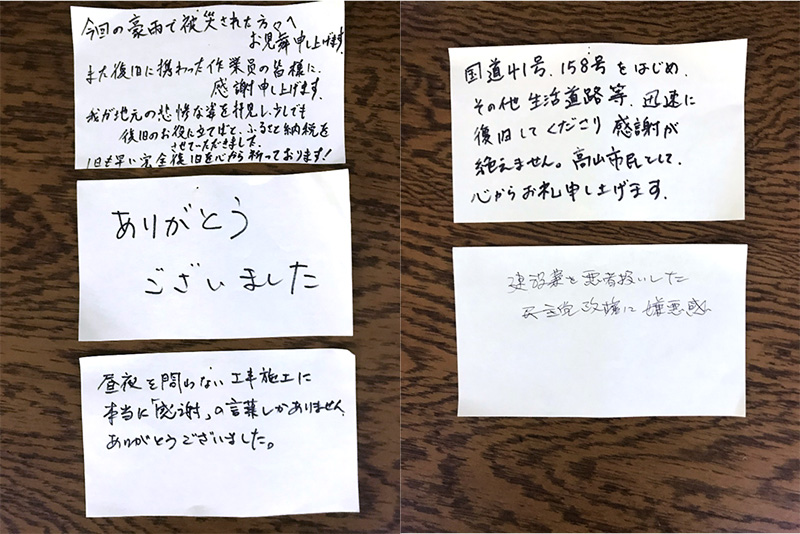 今回の豪雨で被災された方々へ
お見舞申し上げます
また復旧に携わった作業員の皆様に、
感謝申し上げます。
我が地元の悲惨な姿を拝見し、少しでも
復旧のお役に立てばと、ふるさと納税を
させていただきました。
1日も早い完全復旧を心から祈っております!
ありがとう
ございました
昼夜を問わない工事施工に
本当に「感謝」の言葉しかありません。
ありがとうございました。
国道41号、158号をはじめ、
その他生活道路等、迅速に
復旧してくださり感謝が
絶えません。高山市民として、
心からお礼申し上げます。
建設業を悪者扱いした
民主党政権に嫌悪感